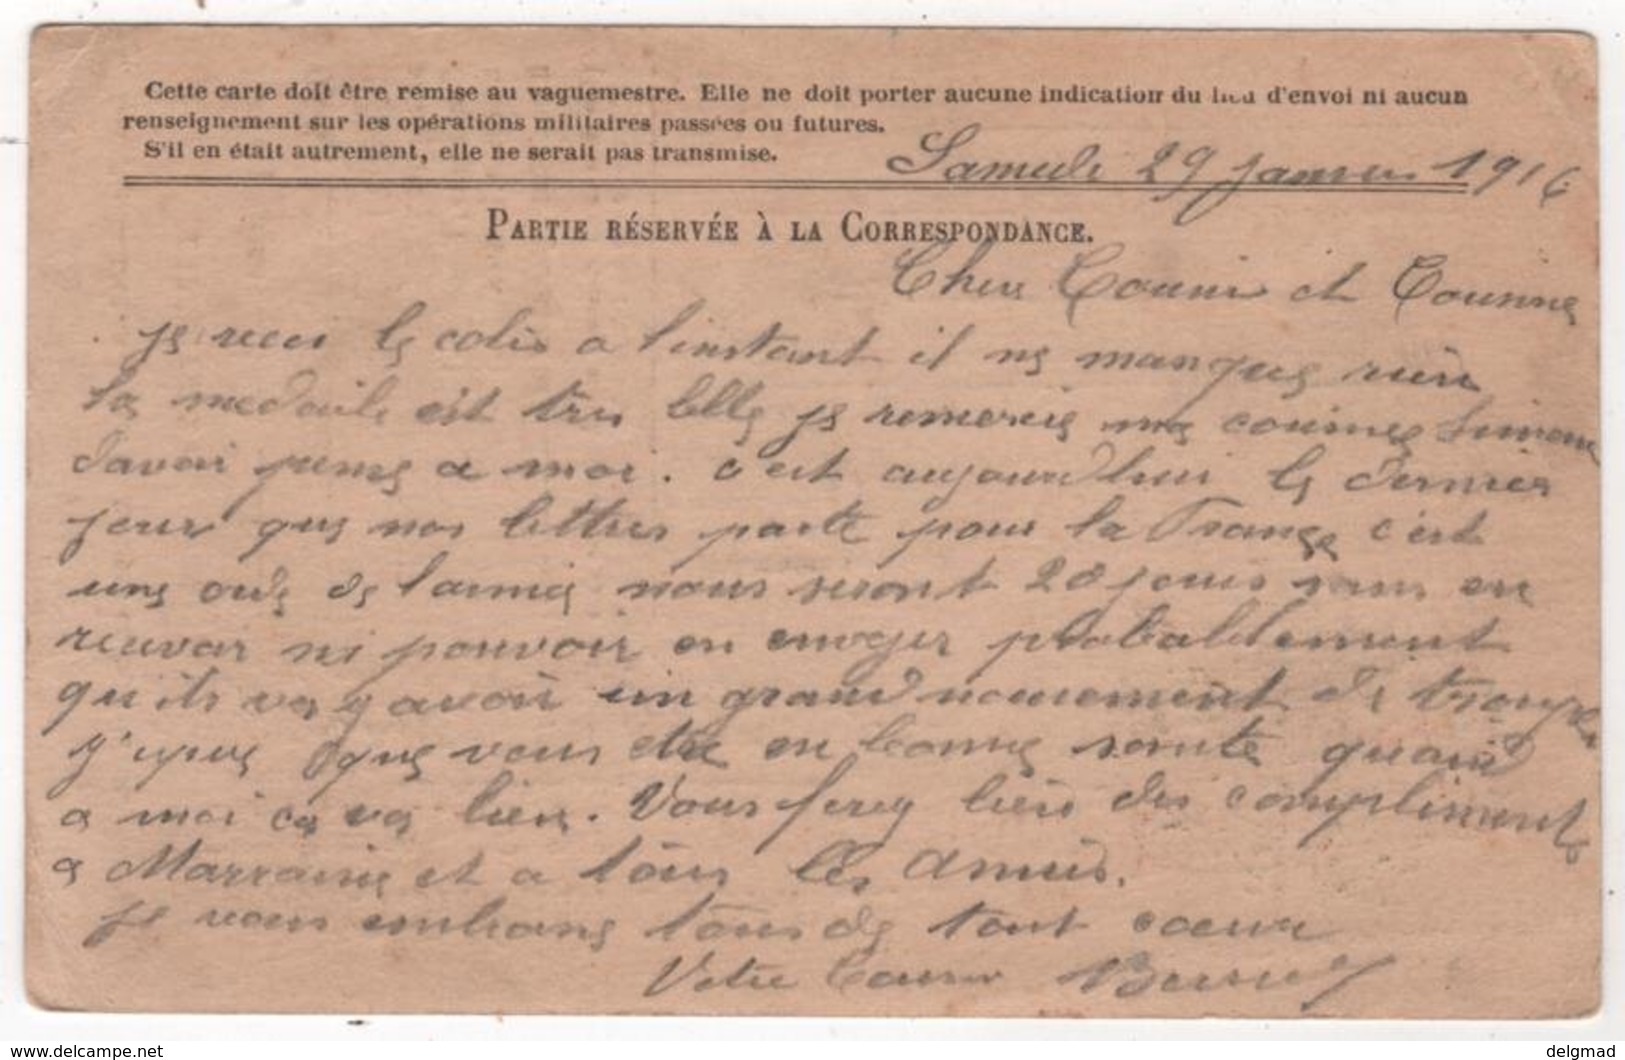 Cette carte doit être remise au vaguemestre. Elle ne doit porter aucune indication du lieu d'envoi ni aucun
renseignement sur les opérations militaires passées ou futures.
S'il en était autrement, elle ne serait pas transmise.
Samedi 29 Janvier 1916
PARTIE RÉSERVÉE À LA CORRESPONDANCE.
Chers Cousin et Cousine
je recu le colis a l'instant il ne manque rien
la medaile est très belle je remercie ma cousine Simone
davoir pensé a moi. c'est aujourdhui le dernier
jour que nos lettres parte pour la France c'est
une ordre de larmée nous seront 20 jours sans en
recevoir ni pouvoir en envoyer probablement
qu'ils va y avoir un grand mouvement de troupes
j'espere que vous ete en bonne santé quand
a moi ca va bien. Vous ferez bien des compliments
a Marraine et a tous les amies.
je vous embrasse tous de tout coeur
Votre Cousin
www.delcampe.net
delgmad